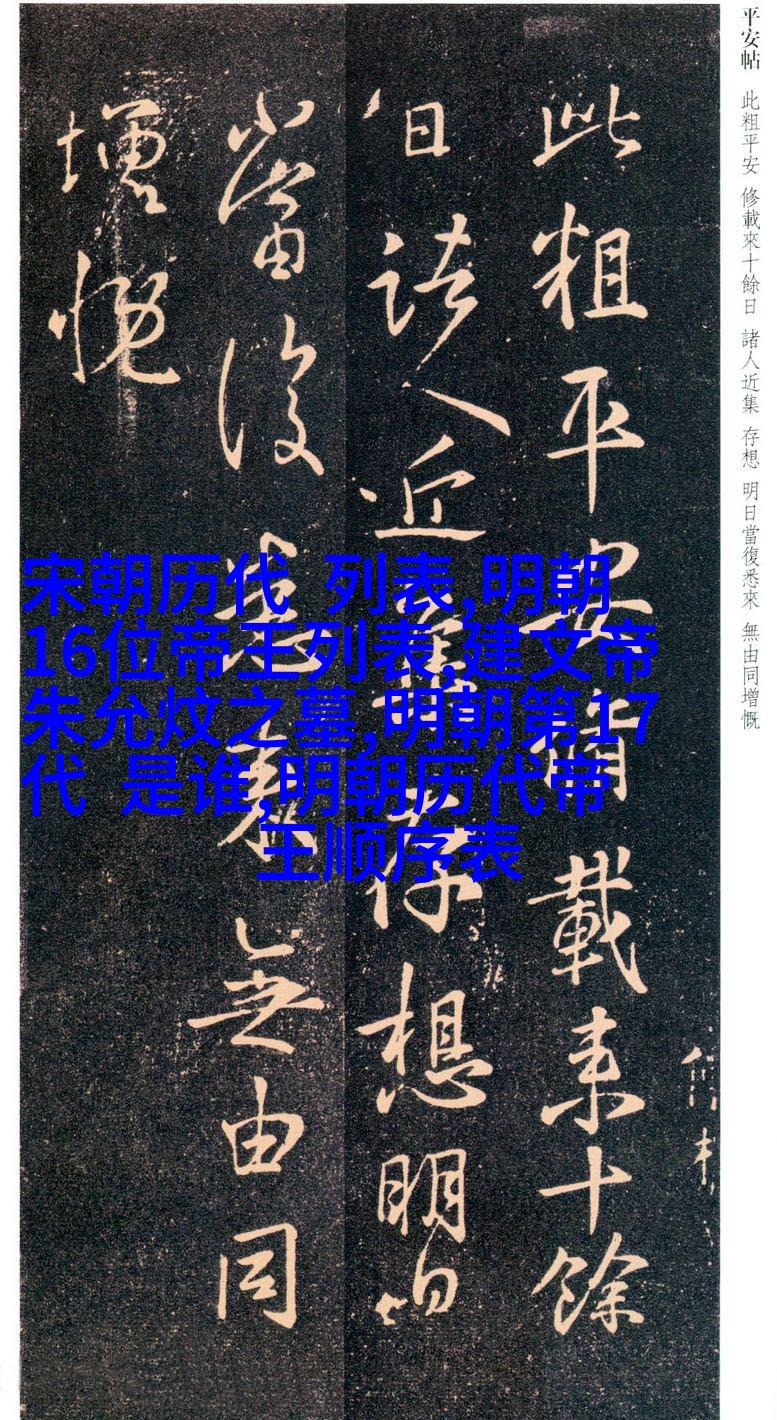 平安帖 此粗平安 修載來十餘日 諸人近集 存想 明日當復悉來 無由同增慨
此粗平安脩載來十餘
日諸人近集存想明日
當復悉來無由同
增慨
宋朝历代 列表,明朝
16位帝王列表,建文帝
朱允炆之墓,明朝第17
代 是谁,明朝历代帝
王顺序表